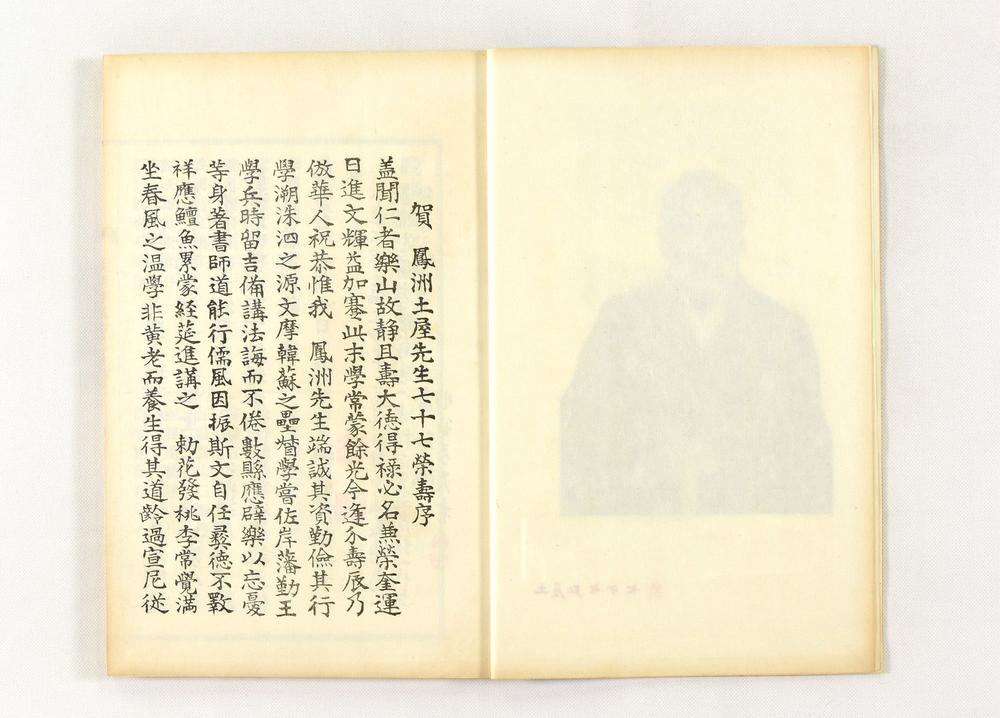 賀　鳳洲土屋先生七十七榮壽序
盖聞仁者樂山故静且壽大德得祿必名兼榮奎運
日進文輝益加蹇此末學常蒙餘光今逢介壽辰乃
倣華人祝恭惟我　鳳洲先生端誠其資勤儉其行
學溯洙泗之源文摩韓蘇之壘嘗佐岸藩勤王
學兵時留吉備講法誨而不倦數縣應辟樂以忘憂
等身著書師道能行儒風因振斯文自任彜德不斁
祥應鱣魚累蒙經莚進講之　勅花發桃李常覺滿
坐春風之温學非黄老而養生得其道齡過宣尼從